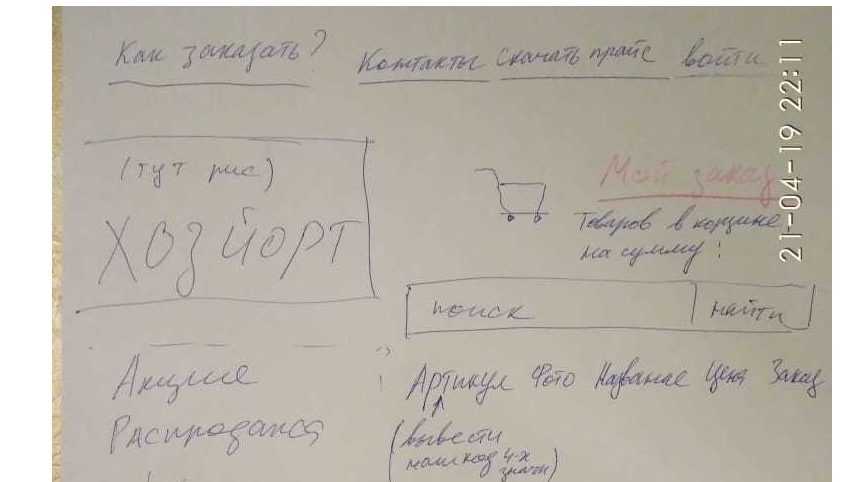 Как заказать? Контакты скачать прайс войти
(тут рис)
ХОЗ ЙОРТ
Мой заказ
Товаров в корзине
на сумму:
поиск найти
Акцие
Распродажа
Артикул Фото Название Цена Заказ
(вывести
наш код 4-х
значн)
21-04-19 22:11